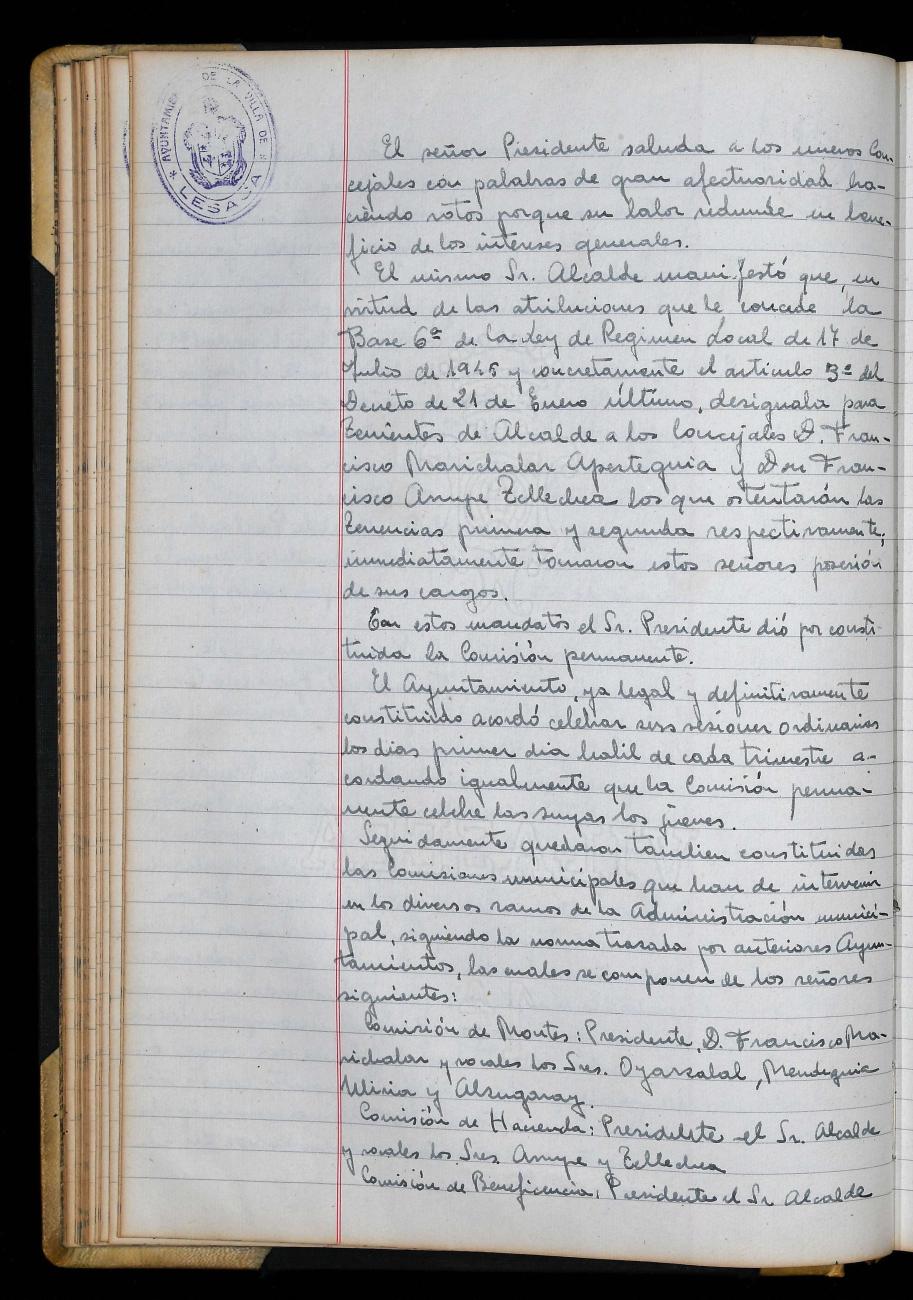 AYUNTAMIENTO DE LA VILLA DE
* LESACA *
El señor Presidente saluda a los nuevos Con-
cejales con palabras de gran afectuosidad ha-
ciendo votos porque su labor redunde en bene-
ficio de los intereses generales.
El mismo Sr. Alcalde manifestó que, en
virtud de las atribuciones que le concede la
Base 6ª de la Ley de Regimen Local de 17 de
Julio de 1945 y concretamente el articulo 3º del
Decreto de 21 de Enero último, designaba para
Tenientes de Alcalde a los Concejales D. Fran-
cisco Marichalar Apesteguia y Don Fran-
cisco Arrupe Tellechea los que ostentarán las
Tenencias primera y segunda respectivamente;
inmediatamente tomaron estos señores posesión
de sus cargos.
Con estos mandatos el Sr. Presidente dió por consti-
tuida la Comisión permanente.
El Ayuntamiento, ya legal y definitivamente
constituido acordó celebrar sus sesiones ordinarias
los dias primer dia habil de cada trimestre a-
cordando igualmente que la Comisión perma-
nente celebre las suyas los jueves.
Seguidamente quedaron tambien constituidas
las Comisiones municipales que han de intervenir
en los diversos ramos de la Administración munici-
pal, siguiendo la norma trazada por anteriores Ayun-
tamientos, las cuales se componen de los señores
siguientes:
Comisión de Montes: Presidente, D. Francisco Ma-
richalar y vocales los Sres. Oyarzabal, Mendeguia
y Alzugaray.
Comisión de Hacienda: Presidente el Sr. Alcalde
y vocales los Sres. Arrupe y Tellechea
Comisión de Beneficencia, Presidente el Sr Alcalde